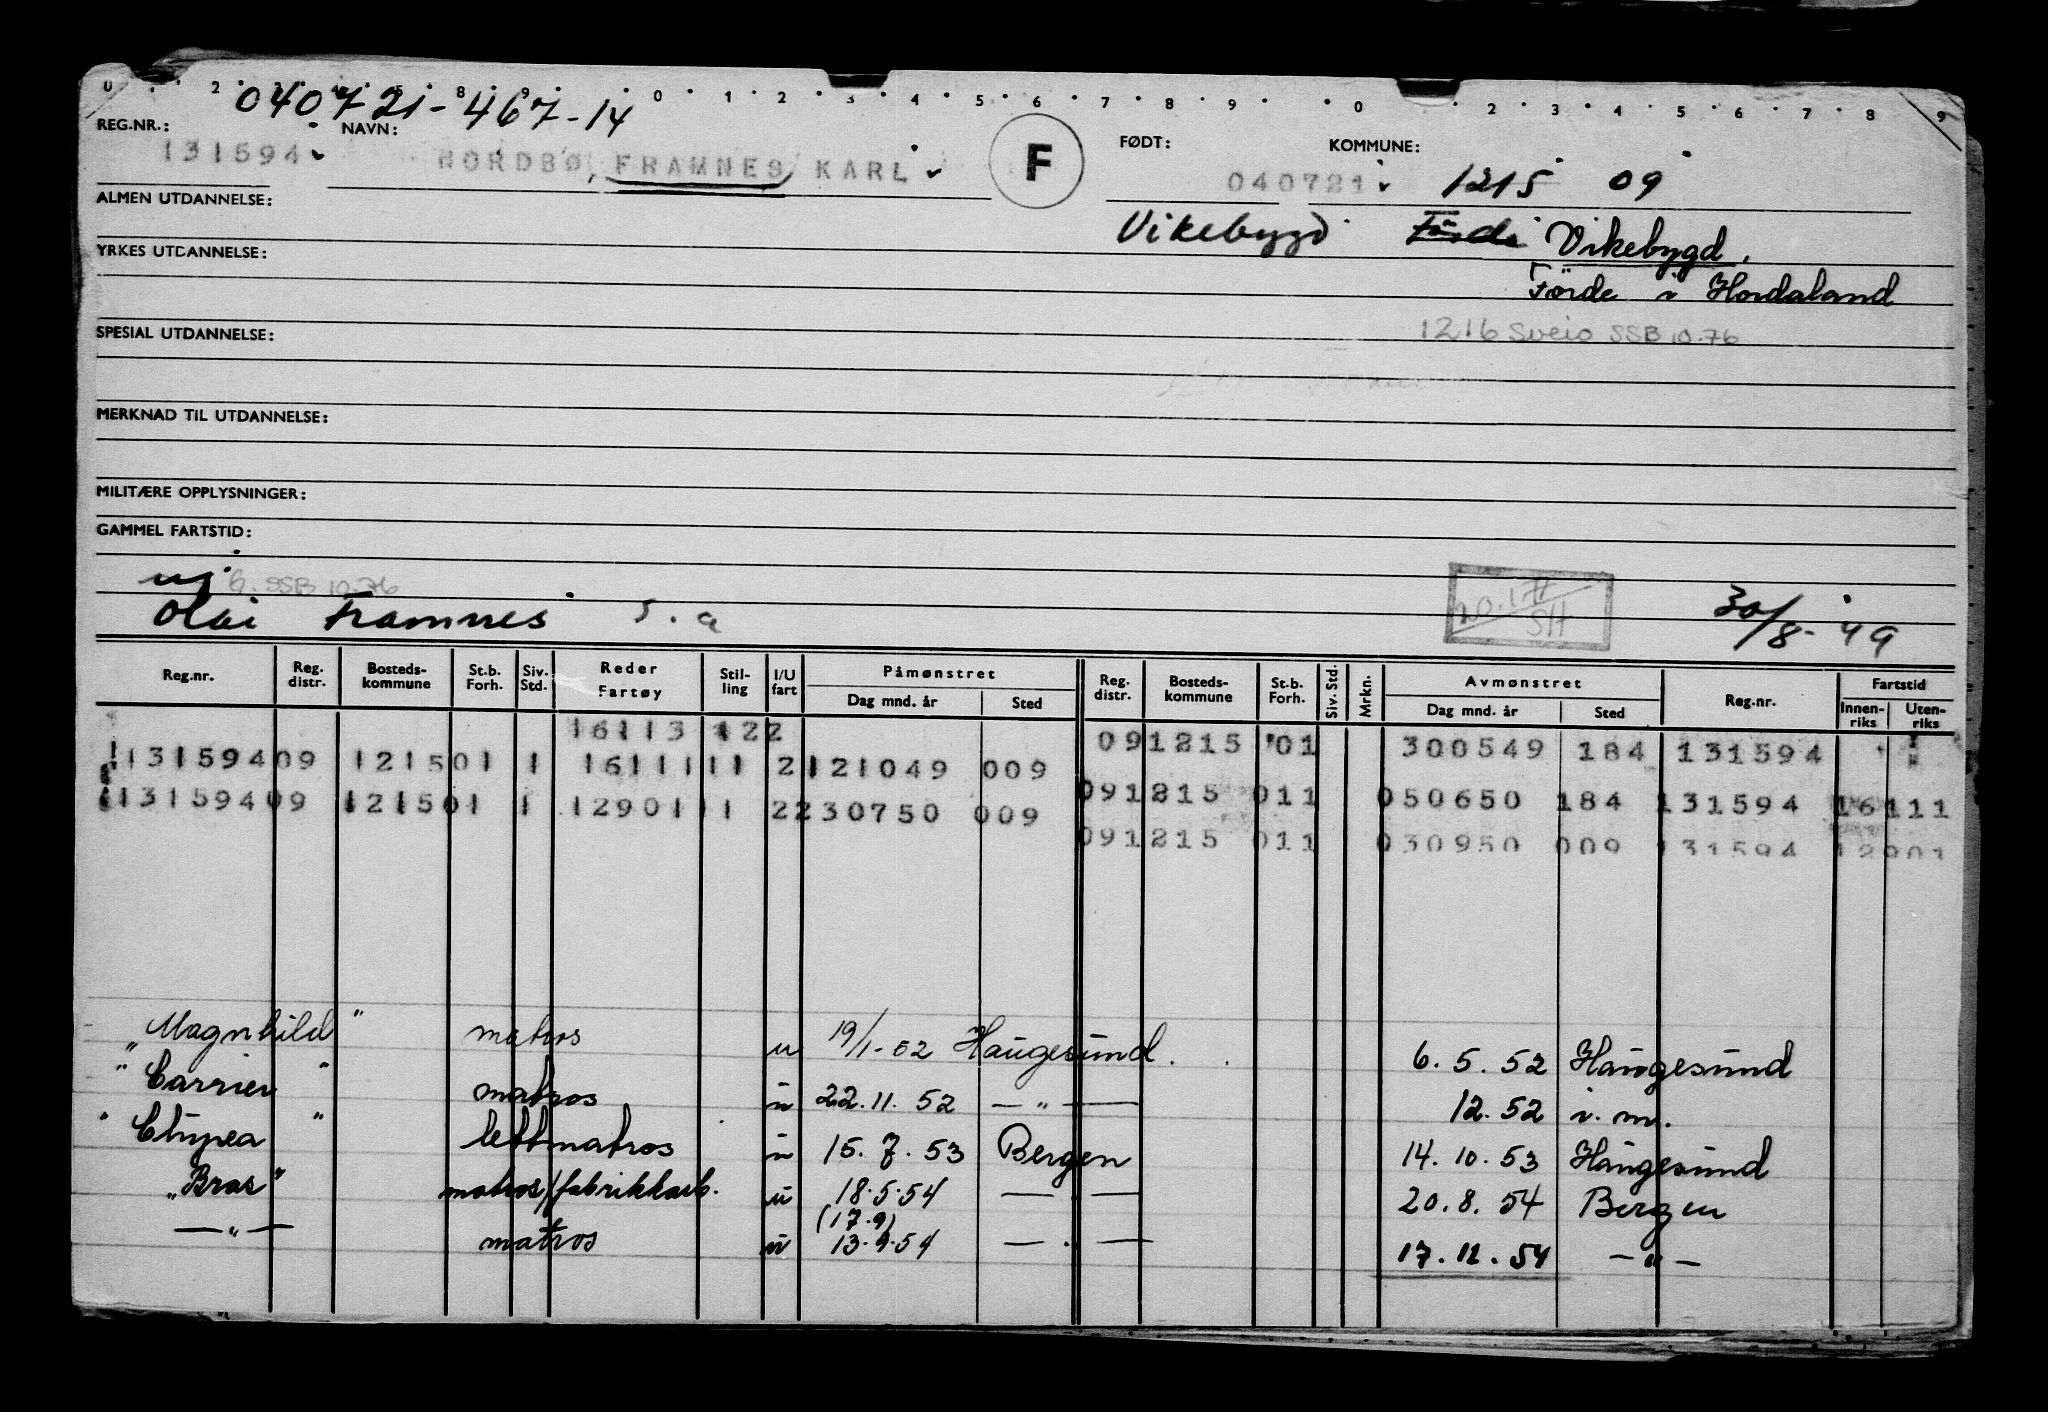 040721-467-14
REG.NR.: NAVN: FØDT: KOMMUNE:
131594 NORDBØ, FRAMNES KARL F 040721 1215 09
ALMEN UTDANNELSE: Vikebygd Förde Vikebygd.
YRKES UTDANNELSE:
Förde i Hordaland
SPESIAL UTDANNELSE: 1216 Sveio SSB 10.76
MERKNAD TIL UTDANNELSE:
MILITÆRE OPPLYSNINGER:
GAMMEL FARTSTID:
6. SSB 10.76
Olai Framnes s. a 30/8-49
Reg.nr. Reg. distr. Bosteds-kommune St.b. Forh. Siv. Std. Reder Fartøy Stil-ling I/U fart Påmønstret Dag mnd. år Sted Reg. distr. Bosteds-kommune St.b. Forh. Siv. Std. Mrkn. Avmønstret Dag mnd. år Sted Reg.nr. Fartstid Innen-riks Uten-riks
16113 122 091215 01 300549 184 131594
13159409 121501 1 1611111 2121049 009
091215 011 050650 184 131594 16111
13159409 121501 1 1290111 2230750 009
091215 011 030950 009 131594 12901
"Magnhild" matros u 19/1-52 Haugesund. 6.5.52 Haugesund
"Carrier" matros u 22.11.52 — " — 12.52 i.m.
"Clupea" lettmatros u 15.7.53 Bergen 14.10.53 Haugesund
"Bras" matros/fabrikkarb. u 18.5.54 — — 20.8.54 Bergen
(17.9)
— " — matros u 13.9.54 — . — 17.11.54 — " —